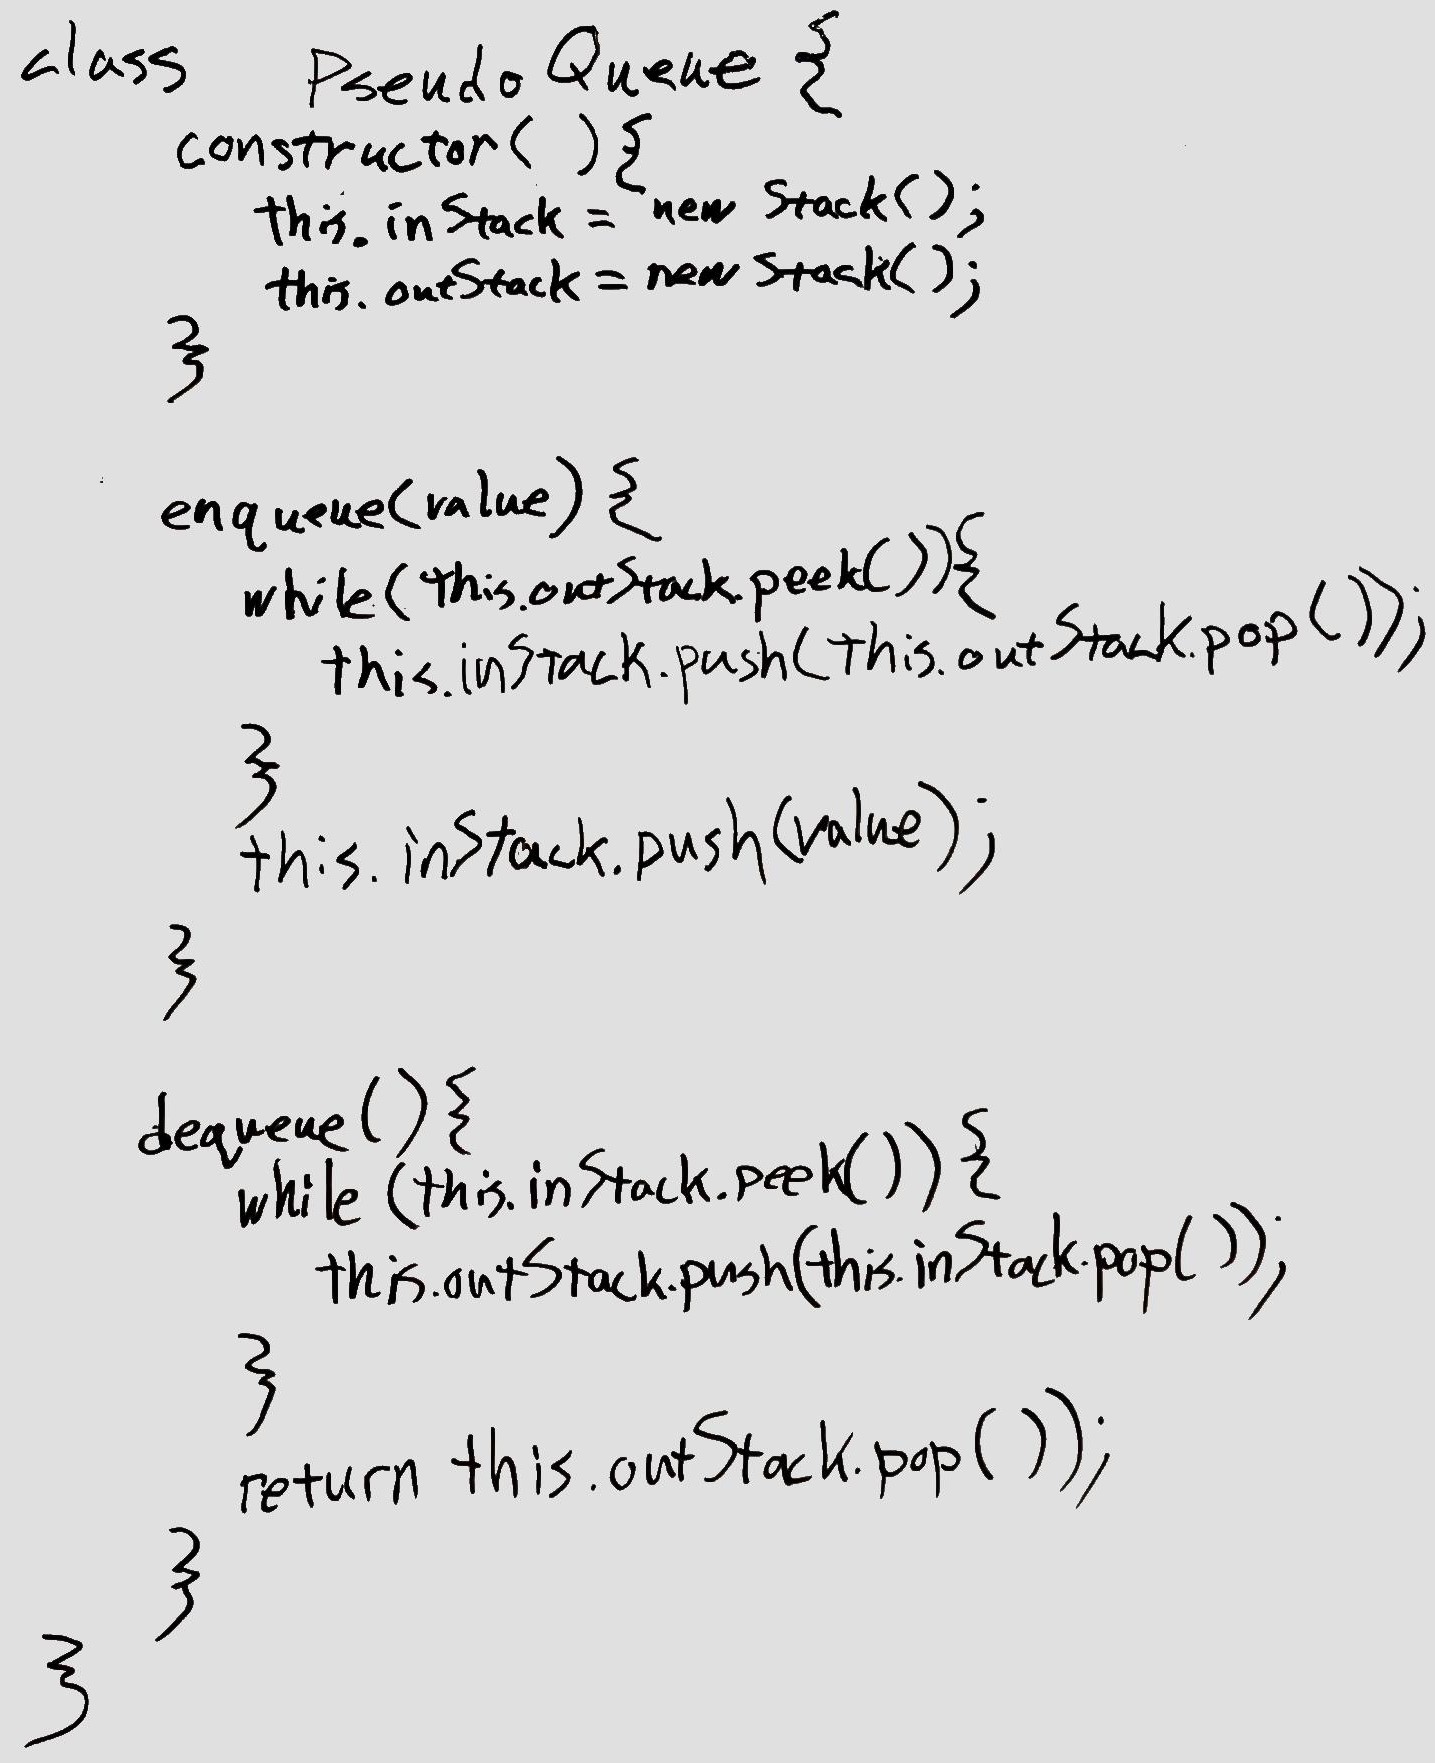 class PseudoQueue {
constructor( ){
this.inStack = new Stack();
this.outStack = new Stack();
}
enqueue(value) {
while(this.outStack.peek()){
this.inStack.push(this.outStack.pop());
}
this.inStack.push(value);
}
dequeue(){
while (this.inStack.peek()) {
this.outStack.push(this.inStack.pop());
}
return this.outStack.pop());
}
}